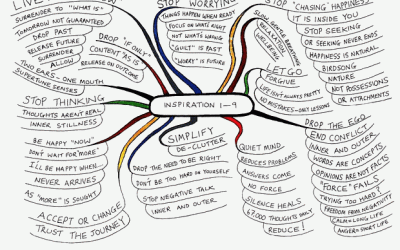 LIVE
NOW
SURRENDER TO "WHAT IS"
TOMORROW NOT GUARANTEED
DROP PAST
RELEASE FUTURE
SURRENDER
ALLOW
DROP "IF ONLY"
CONTENT "AS IS"
RELEASE ON OUTCOME
TWO EARS - ONE MOUTH
SUPERTUNE SENSES
STOP THINKING
THOUGHTS AREN'T REAL
INNER STILLNESS
BE HAPPY "NOW"
DON'T WAIT FOR "MORE"
I'LL BE HAPPY WHEN
NEVER ARRIVES
AS "MORE" IS SOUGHT
ACCEPT OR CHANGE
TRUST THE JOURNEY
STOP WORRYING
THINGS HAPPEN WHEN READY
FOCUS ON WHAT'S RIGHT
NOT WHAT'S WRONG
"GUILT" IS PAST
"WORRY" IS FUTURE
INSPIRATION 1-9
SIMPLIFY
DE-CLUTTER
DROP THE NEED TO BE RIGHT
DON'T BE TOO HARD ON YOURSELF
STOP NEGATIVE TALK
INNER AND OUTER
SLOW DEEPER BREATHING
RELAXATION
WELLBEING
STOP "CHASING" HAPPINESS
IT IS INSIDE YOU
STOP SEEKING
OR SEEKING NEVER ENDS
HAPPINESS IS NATURAL
BIRDSONG
NATURE
NOT POSSESSIONS
OR ATTACHMENTS
LET GO
FORGIVE
LIFE ISN'T ALWAYS PRETTY
NO MISTAKES - ONLY LESSONS
QUIET MIND
REDUCES PROBLEMS
ANSWERS COME
NO FORCE
SILENCE HEALS
67,000 THOUGHTS DAILY
REDUCE!
DROP THE EGO
END CONFLICT
INNER AND OUTER
WORDS ARE CONCEPTS
OPINIONS ARE NOT FACTS
"FORCE" FAILS
TRYING TOO HARD!
FREEDOM FROM NEGATIVITY
CALM = LONG LIFE
ANGER = SHORT LIFE